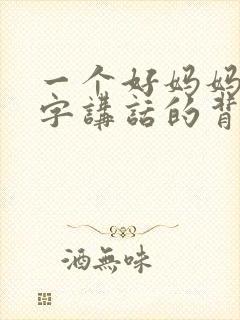 一个好妈妈
字講話的背
酒無味